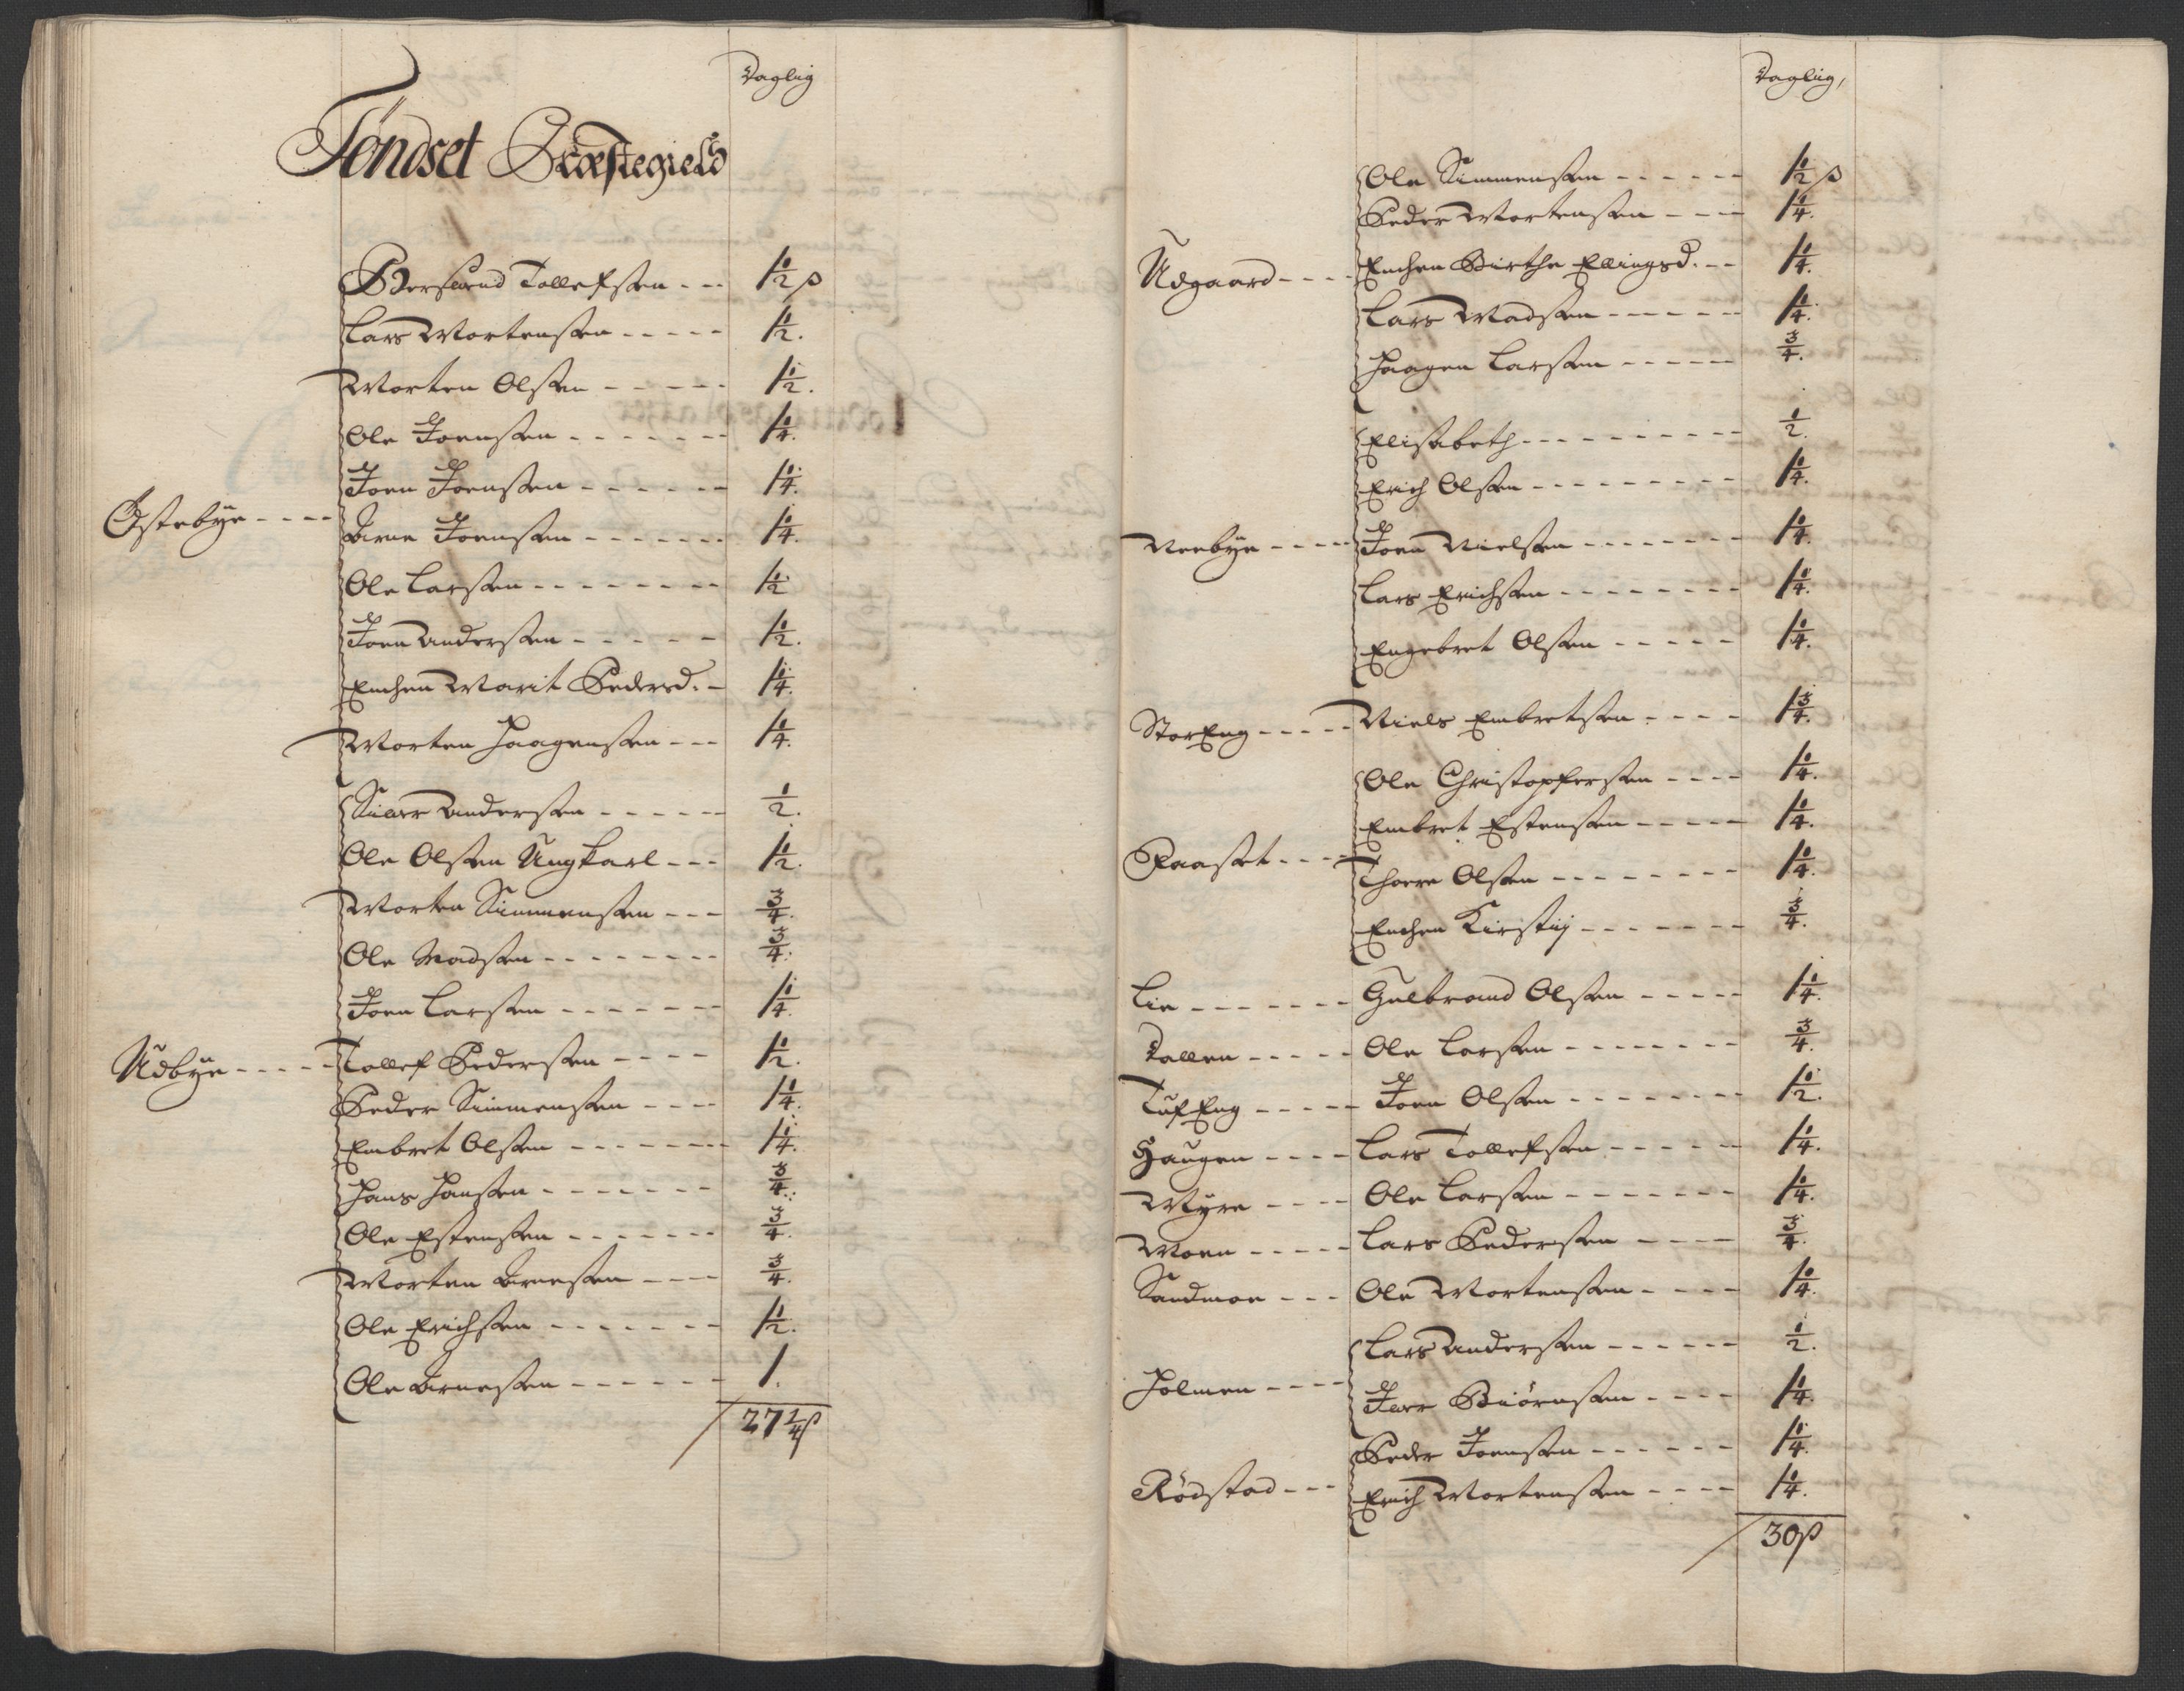 Daglig
Tøndset Præstegield
Bersvend Tollefsen - - - 1 1/2 ß
Lars Mortensen - - - - - 1 1/2.
Morten Olsen - - - - - 1 1/2.
Ole Joensen - - - - - - 1 1/4.
Joen Joensen - - - - - - 1 1/4.
Østebye - - - - Arne Joensen - - - - - - - 1 1/4.
Ole Larsen - - - - - - - - 1 1/2
Joen Andersen - - - - - 1 1/2.
Enchen Marit Pedersd. - 1 1/4.
Morten Haagensen - - - 1 1/4.
Siver Andersen - - - - - 1/2.
Ole Olsen Ungkarl - - - 1 1/2.
Morten Simmensen - - - 3/4.
Ole Madsen - - - - - - - - 3/4.
Joen Larsen - - - - - - - 1 1/4.
Udbye - - - - - Tollef Pedersen - - - - 1 1/2.
Peder Simmensen - - - - 1 1/4.
Embret Olsen - - - - - - - 1 1/4.
Hans Hansen - - - - - - - 3/4.
Ole Estensen - - - - - - - 3/4.
Morten Arnesen - - - - 3/4.
Ole Erichsen - - - - - - - 1 1/2.
Ole Arnesen - - - - - - 1.
27 1/4 ß
Daglig,
Ole Simmensen - - - - - - 1 1/2 ß
Peder Mortensen - - - - 1 1/4.
Udgaard - - - - Enchen Birthe Ellingsd. - - 1 1/4.
Lars Madsen - - - - - - 1 1/4.
Haagen Larsen - - - - - 3/4.
Elisabeth - - - - - - - - - - 1/2.
Erich Olsen - - - - - - - - - 1 1/4.
Neebye - - - - Joen Nielsen - - - - - - - - 1 1/4.
Lars Erichsen - - - - - - - - 1 1/4.
Engebret Olsen - - - - - 1 1/4.
StorEng - - - - - Niels Embretsen - - - - 1 3/4.
Ole Christophersen - - - - 1 1/4.
Embret Estensen - - - - - 1 1/4.
Paaset - - - - Thorre Olsen - - - - - - - - 1 1/4.
Enchen Kirstij - - - - - - - 3/4.
Lie - - - - - - - Gulbrand Olsen - - - - - 1 1/4.
Dallen - - - - - Ole Larsen - - - - - - - - 3/4.
TufEng - - - - - Joen Olsen - - - - - - - - 1 1/2.
Haugen - - - - Lars Tollefsen - - - - - - 1 1/4.
Myre - - - - Ole Larsen - - - - - - - - 1 1/4.
Moen - - - - - Lars Pedersen - - - - 3/4.
Sandmoe - - - Ole Mortensen - - - - 1 1/4.
Lars Andersen - - - - - - 1/2.
Holmen - - - - Iver Biörnsen - - - - 1 1/4.
Peder Joensen - - - - - - 1 1/4.
Rødstad - - - Erich Mortensen - - - - 1 1/4.
30 ß